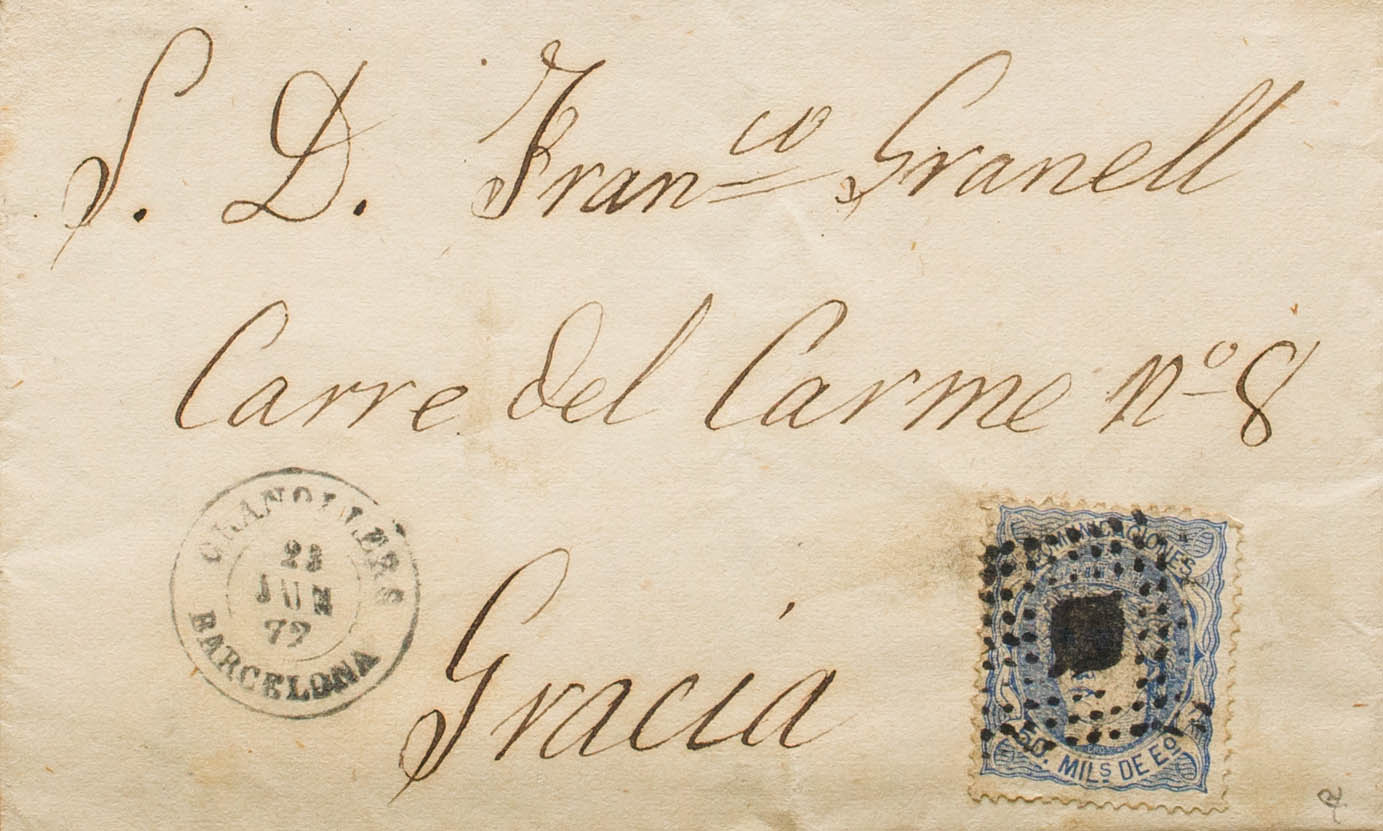 S. D. Franco Granell
Carre del Carme No 8
GRANOLLERS
23
JUN
72
BARCELONA
Gracia
COMUNICACIONES
50. MILS DE Eo